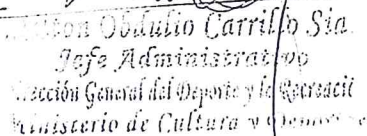 Obdulio Carrillo Sia
Jefe Administrativo
ección General del Deporte y la Recreació
Ministerio de Cultura y